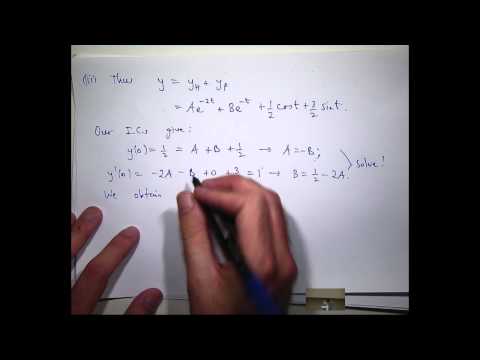 (iii) Thus y = y_H + y_P
= Ae^{-2t} + Be^{-t} + 1/2 cost + 3/2 sint.
Our I.Cs give:
y(0) = 1/2 = A + B + 1/2 → A = -B;
y'(0) = -2A - B + 0 + 3/2 = 1 → B = 1/2 - 2A. } Solve!
We obtain